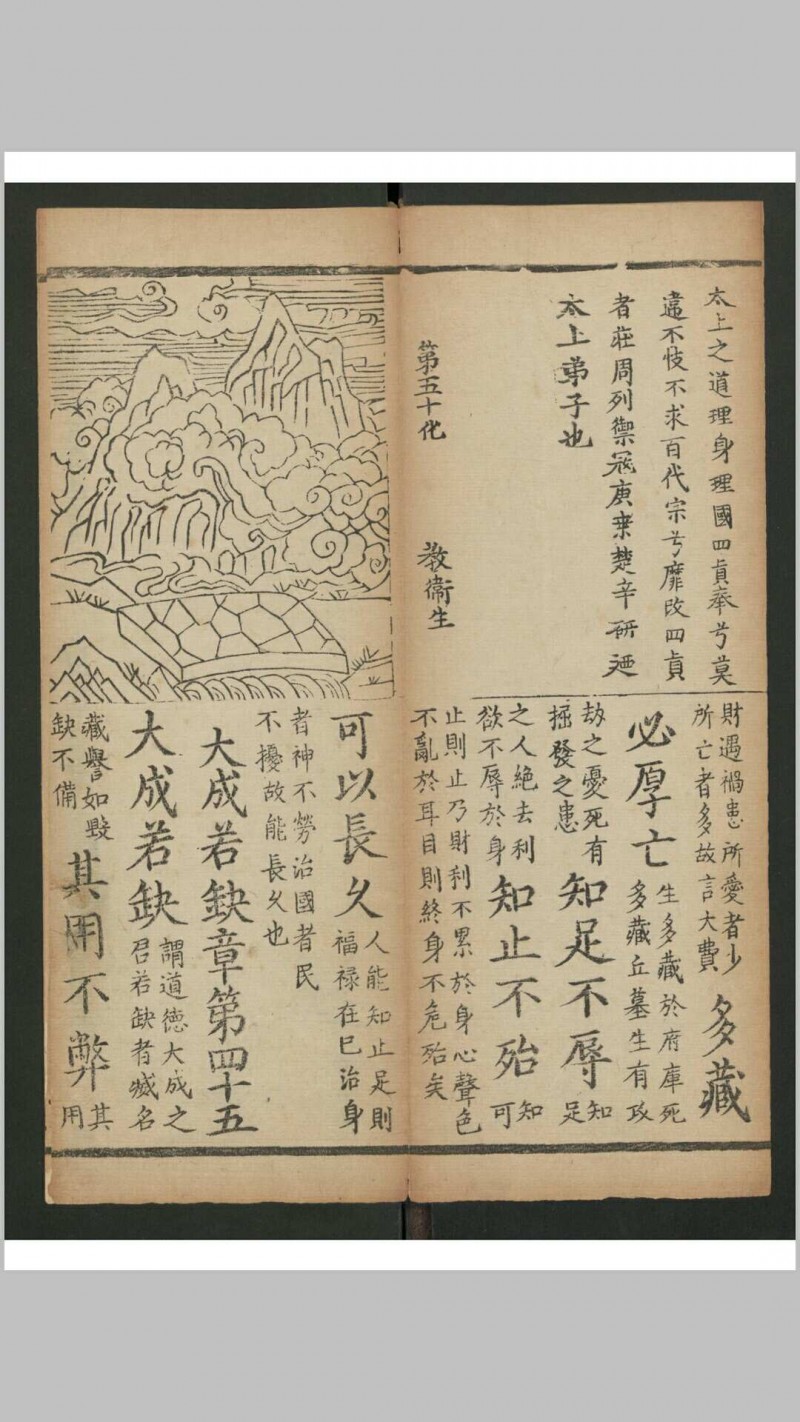 太上之道理身理國四貞奉兮莫
違不忮不求百代宗兮靡改四貞
者莊周列禦冦庚桒楚辛硏廼
太上弟子也
第五十化　教衛生
財遇禍患所愛者少
所亡者多故言大費
多藏
必厚亡
生多藏於府庫死
多藏丘墓生有攻
劫之憂死有
掘發之患
知足不辱
知
足
之人絕去利
欲不辱於身
知止不殆
知
可
止則止乃財利不累於身心聲色
不亂於耳目則終身不危殆矣
可以長久
人能知止足則
福禄在巳治身
者神不勞治國者民
不擾故能長久也
大成若缺章第四十五
大成若缺
謂道德大成之
君若缺者滅名
藏譽如毀
缺不備
其用不弊
其
用